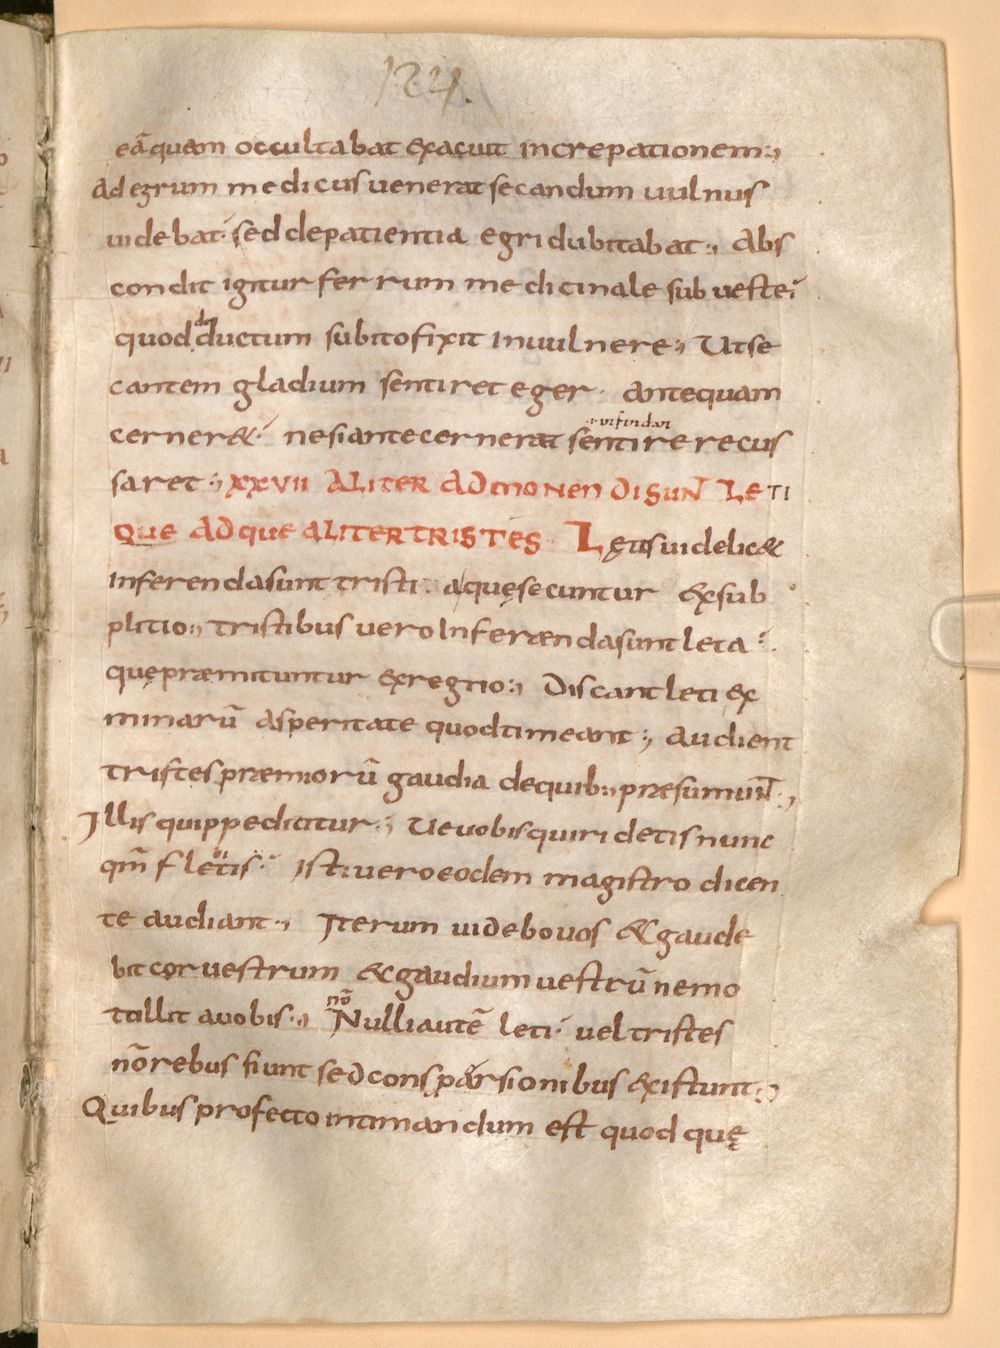 124.
eā quam occultabat exacuit increpationem:,
Ad egrum medicus uenerat secandum uulnus
uidebat. sed de patientia egri dubitabat:, Abs
condit igitur ferrum medicinale sub ueste:
quod ductum subito fixit in uulnere:, Ut se
cantem gladium sentiret eger. antequam
cerner&. ne si ante cerneret sentire recus
saret:, XXVII ALITER ADMONENDI SUNT LETI
QUE ADQUE ALITER TRISTES. Lętis uidelic&
inferenda sunt tristi. aquę secuntur ex sub
plitio:, tristibus uero Inferænda sunt leta.
quę præmituntur ex regno:, Discant leti ex
minarū asperitate quod timeant:, Audient
tristes præmiorū gaudia de quib: præsumunt:,
Illis quippe dicitur:, Ue uobis qui ridetis nunc
qm̄ fletis. Isti uero eodem magistro dicen
te audiant:, Iterum uidebo uos & gaude
bit cor uestrum & gaudium uestrū nemo
tollit a uobis:, nō
Nulli autē leti. uel tristes
nō rebus fiunt sed consparsionibus existunt:,
Quibus profecto intimandum est quod quę